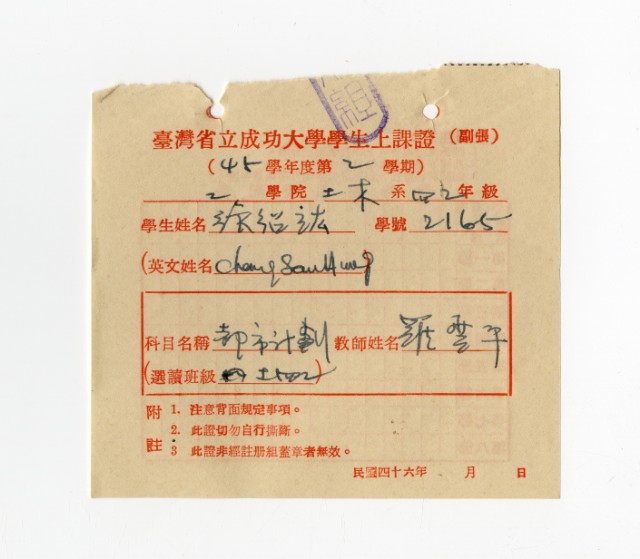 臺灣省立成功大學學生上課證（副張）
（45學年度第2學期）
學院 土木 系 四 年級
學生姓名 學號 2165
（英文姓名
科目名稱 都市計劃 教師姓名 羅雲平
（選讀班級 ）
附註 1. 注意背面規定事項。
2. 此證切勿自行撕斷。
3 此證非經註册組蓋章者無效。
民國四十六年 月 日